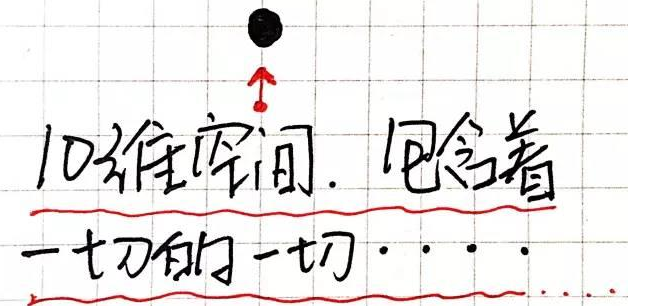 10维空间. 包含着
一切的一切· · · ·